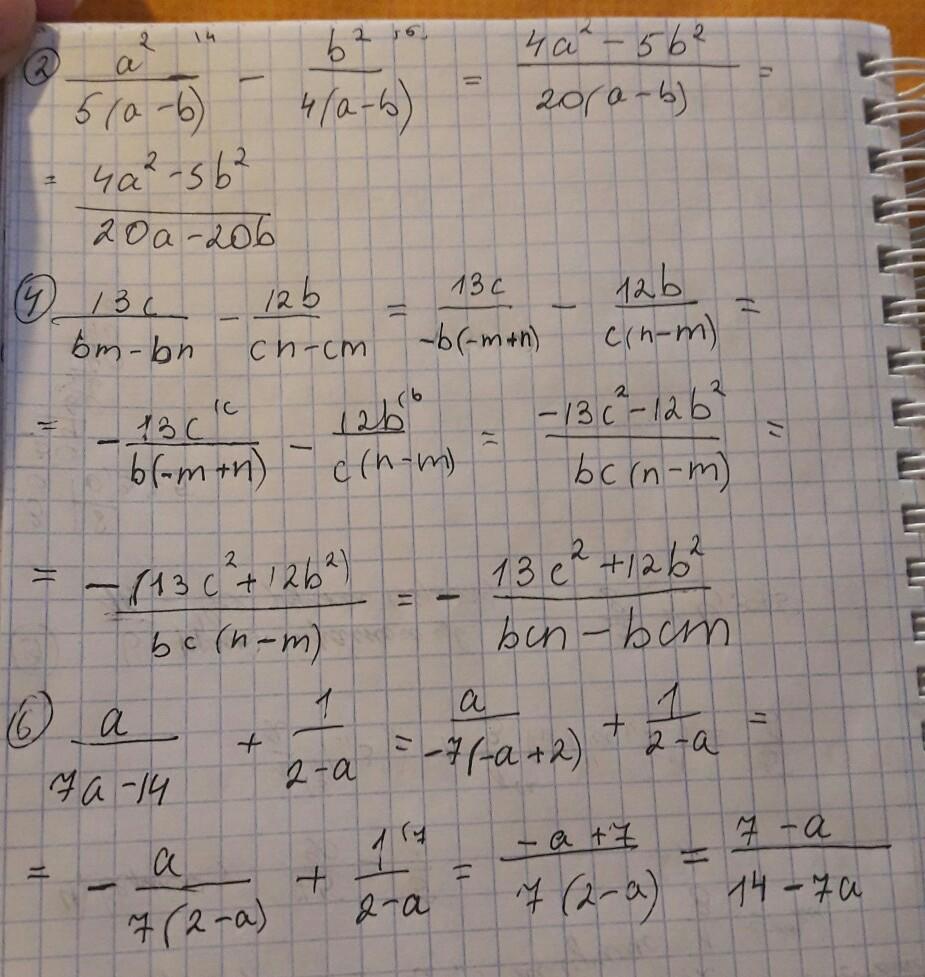 ② a²⁽⁴/5(a-b) - b²⁽⁵/4(a-b) = 4a²-5b²/20(a-b) =
= 4a²-5b²/20a-20b
④ 13c/bm-bn - 12b/cn-cm = 13c/-b(-m+n) - 12b/c(n-m) =
= - 13c⁽ᶜ/b(-m+n) - 12b⁽ᵇ/c(n-m) = -13c²-12b²/bc(n-m) =
= -(13c²+12b²)/bc(n-m) = - 13c²+12b²/bcn-bcm
⑥ a/7a-14 + 1/2-a = a/-7(-a+2) + 1/2-a =
= - a/7(2-a) + 1⁽⁷/2-a = -a+7/7(2-a) = 7-a/14-7a